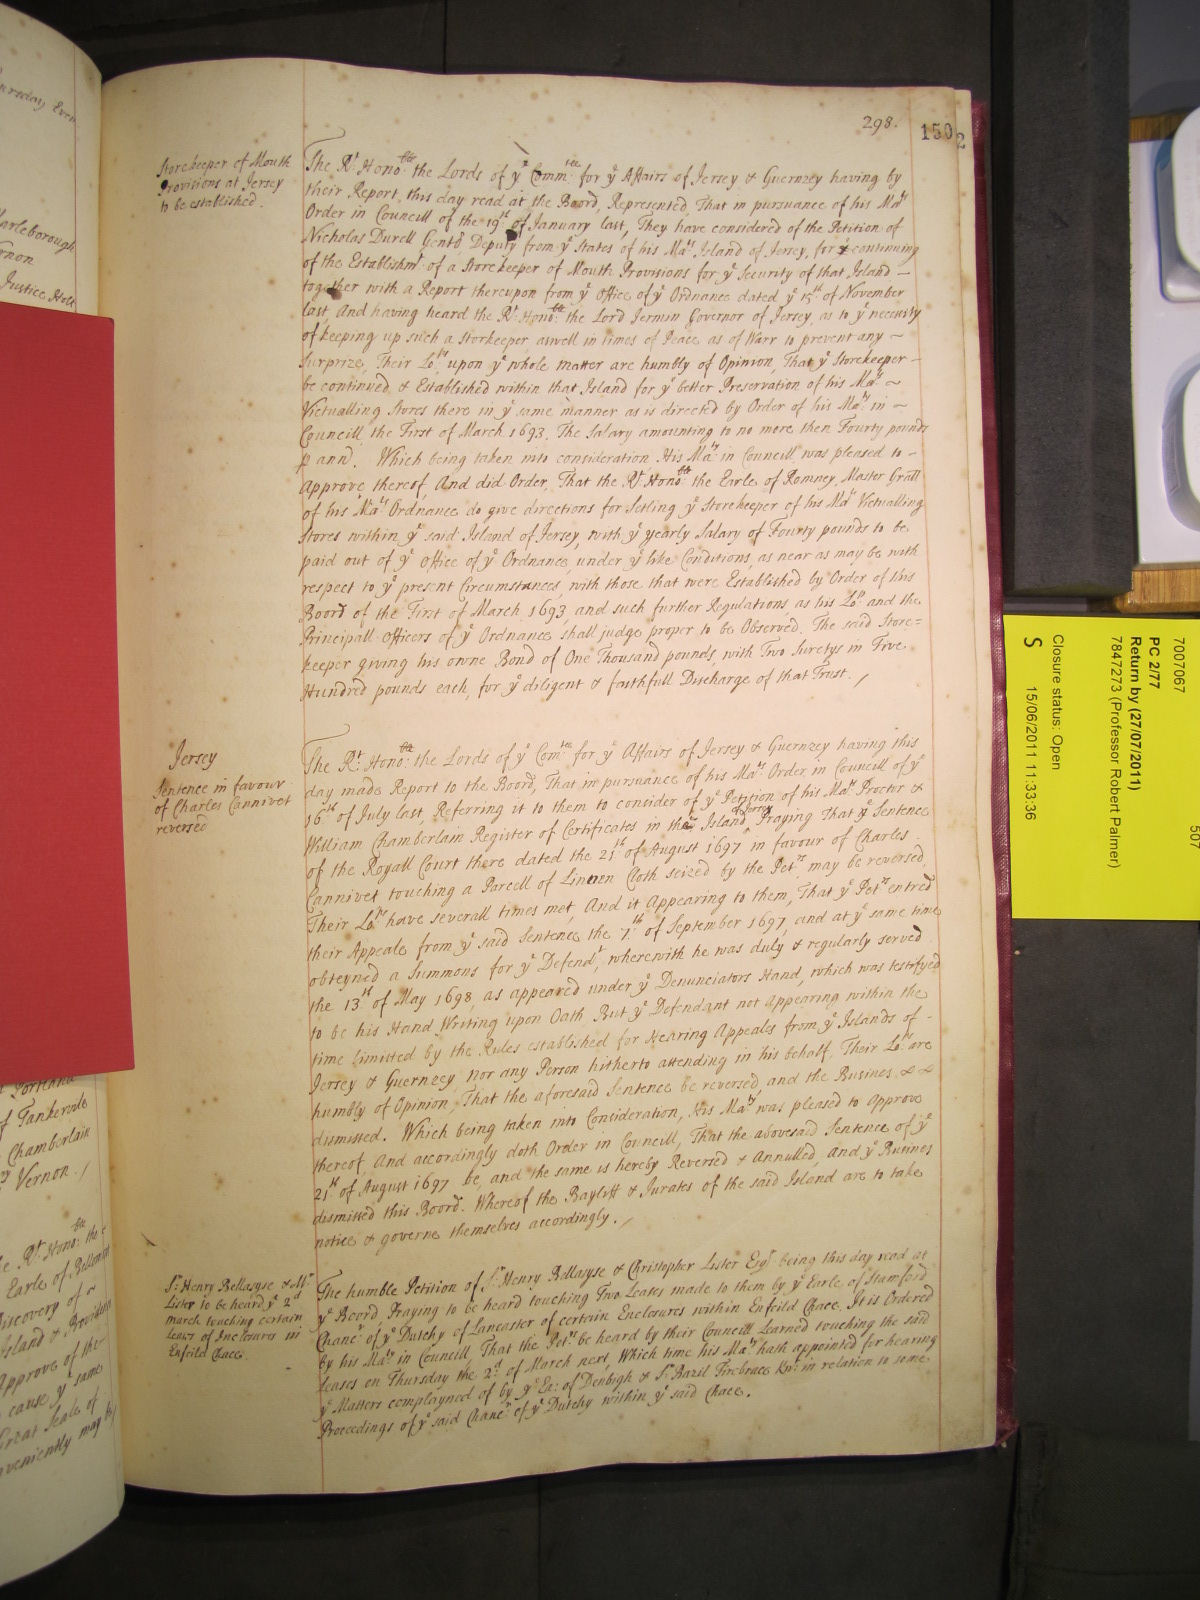 298.
150
2
Storekeeper of Mouth
Provisions at Jersey
to be established.
The Rt. Honoble the Lords of ye Commtee for ye Affairs of Jersey & Guernzey having by
their Report, this day read at the Board, Represented, That in pursuance of his Mats
Order in Councill of the 19th of January last, They have considered of the Petition of
Nicholas Durell Gentd Deputy from ye States of his Mats Island of Jersey, for continuing
of the Establishmt of a Storekeeper of Mouth Provisions for ye Security of that Island –
together with a Report thereupon from ye Office of ye Ordnance dated ye 15th of November
last, And having heard the Rt. Honoble the Lord Jermin Governor of Jersey, as to ye necessity
of keeping up such a Storkeeper aswell in times of Peace, as of Warr to prevent any ~
Surprize, Their Lopps upon ye whole matter are humbly of Opinion, That ye Storekeeper –
be continued & Established within that Island for ye better Preservation of his Mats ~
Victualling Stores there in ye same manner as is directed by Order of his Maty in ~
Councill the First of March 1693. The Salary amounting to no more then Fourty pounds
p ann. Which being taken into consideration His Maty in Councill was pleased to –
Approve thereof, And did Order, That the Rt. Honoble the Earle of Romney, Master Grall
of his Mats Ordnance do give directions for Setling ye Storekeeper of his Mats Victualling
Stores within ye said Island of Jersey, with ye yearly Salary of Fourty pounds to be
paid out of ye Office of ye Ordnance, under ye like Conditions, as near as may be with
respect to ye present Circumstances, with those that were Established by Order of this
Board of the First of March 1693, and such further Regulations, as his Lopp and the
Principall Officers of ye Ordnance shall judge proper to be Observed. The said Store=
keeper giving his owne Bond of One Thousand pounds, with Two Suretys in Five
Hundred pounds each, for ye diligent & faithfull Discharge of that Trust. /
Jersey
Sentence in favour
of Charles Cannivet
reversed
The Rt. Honoble the Lords of ye Comtee for ye Affairs of Jersey & Guernzey having this
day made Report to the Board, That in pursuance of his Mats Order in Councill of ye
16th of July last, Referring it to them to consider of ye Petition of his Mats Proctor &
William Chamberlain Register of Certificates in the Island of Jersey Praying That ye Sentence
of the Royall Court there dated the 21th of August 1697 in favour of Charles
Cannivet touching a Parcell of Linnen Cloth seized by the Petrs may be reversed,
Their Lopps have severall times met, And it Appearing to them, That ye Petrs entred
their Appeale from ye said Sentence the 7th of September 1697, and at ye same time
obteyned a Summons for ye Defendt, wherewith he was duly & regularly served
the 13th of May 1698, as appeared under ye Denunciators Hand, which was testifyed
to be his Hand Writing upon Oath But ye Defendant not Appearing within the
time limitted by the Rules established for Hearing Appeales from ye Islands of –
Jersey & Guernzey, nor any Person hitherto attending in his behalf. Their Lopps are
humbly of Opinion, That the aforesaid Sentence be reversed and the Busines
dismissed. Which being taken into Consideration, His Maty was pleased to Approve
thereof, And accordingly doth Order in Councill, That the abovesaid Sentence of ye
21th of August 1697 be, and the same is hereby Reversed & Annulled, And ye Busines
dismissed this Board. Whereof the Bayliff & Jurates of the said Island are to take
notice & governe themselves accordingly. /
Sr. Henry Bellasyse & Mr
Lister to be heard ye 2d
march touching certain
leases of Inclosures in
Enfeild Chace.
The humble Petition of Sr. Henry Bellasyse & Christopher Lister Esqr being this day read at
ye Board, Praying to be heard touching Two Leases made to them by ye Earle of Stamford
Chancr of ye Dutchy of Lancaster of certain Enclosures within Enfeild Chace. It is Ordered
by his Maty in Councill, That the Petrs be heard by their Councill Learned touching the said
Leases on Thursday the 2d of March next, Which time his Maty hath appointed for hearing
ye Matters complayned of by ye Ea: of Denbigh & Sr. Bazil Firebrace Knt. in relation to some
Proceedings of ye said Chancr of ye Dutchy within ye said Chace.
arleborough
rnon
Justice Holt
Portland
f Tankervile
Chamberlain
Vernon /
Rt. Honoble the
Earle of
Discovery of
Island
Approve of the
cause ye same
Great Seale of
nveniently may
7007067
507
PC 2/77
Return by (27/07/2011)
7847273 (Professor Robert Palmer)
Closure status: Open
S
15/06/2011 11:33:36